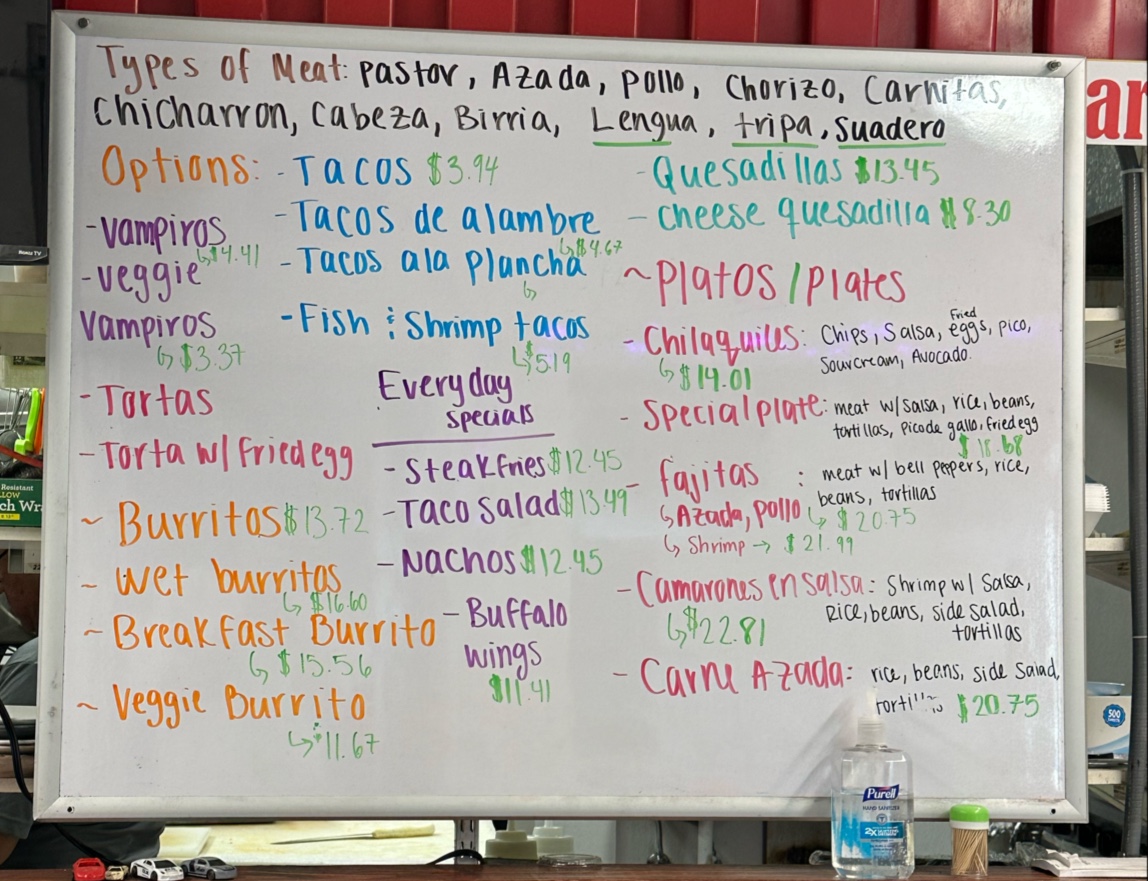 Types of Meat: pastor, Azada, pollo, Chorizo, Carnitas,
Chicharron, Cabeza, Birria, Lengua, tripa, suadero
Options:
- Vampiros
↳$4.41
- veggie
Vampiros
↳ $3.37
- Tortas
- Torta w/ Fried egg
~ Burritos $13.72
~ wet burritos
↳ $16.60
~ Breakfast Burrito
↳ $15.56
~ Veggie Burrito
↳ $11.67
- Tacos $3.94
- Tacos de alambre
↳$4.67
- Tacos ala plancha
↳
- Fish & Shrimp tacos
↳$5.19
Everyday
specials
- Steak fries $12.45
- Taco Salad $13.49
- Nachos $12.45
- Buffalo
wings
$11.41
- Quesadillas $13.45
- cheese quesadilla $8.30
~ Platos / Plates
- Chilaquiles: Chips, Salsa, Fried eggs, pico,
Sourcream, Avocado.
↳ $14.01
- Special plate: meat w/ salsa, rice, beans,
tortillas, Pico de gallo, fried egg
$18.68
- fajitas : meat w/ bell peppers, rice,
beans, tortillas
↳ Azada, pollo ↳ $20.75
↳ Shrimp → $21.99
- Camarones en salsa: Shrimp w/ Salsa,
Rice, beans, side salad,
tortillas
↳$22.81
- Carne Azada: rice, beans, side salad,
$20.75
ar
Roku TV
Resistant
ch Wr
500
Purell
HAND SANITIZER
2X